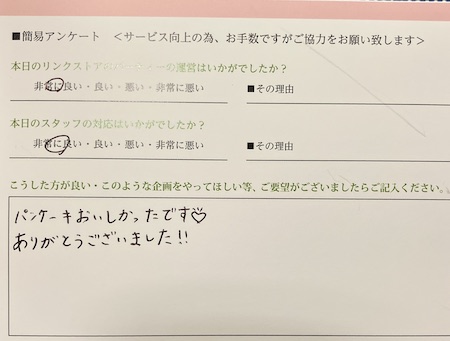 ■簡易アンケート ＜サービス向上の為、お手数ですがご協力をお願い致します＞
本日のリンクストアのパーティーの運営はいかがでしたか？
非常に良い・良い・悪い・非常に悪い
■その理由
本日のスタッフの対応はいかがでしたか？
非常に良い・良い・悪い・非常に悪い
■その理由
こうした方が良い・このような企画をやってほしい等、ご要望がございましたらご記入ください。
パンケーキおいしかったです♡
ありがとうございました!!